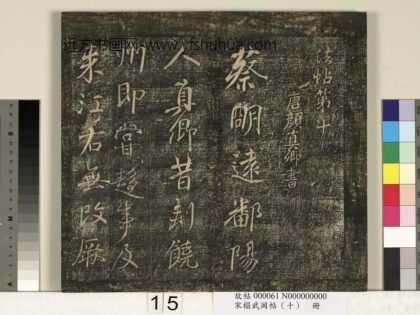 远方书画网-www.yfshuhua.com
法帖第十
唐顏真卿書
蔡明遠鄱陽
人真卿昔刺饒
州即嘗趨事及
来江右無改厥
15
故帖 000061 N000000000
宋搨武岡帖（十） 冊